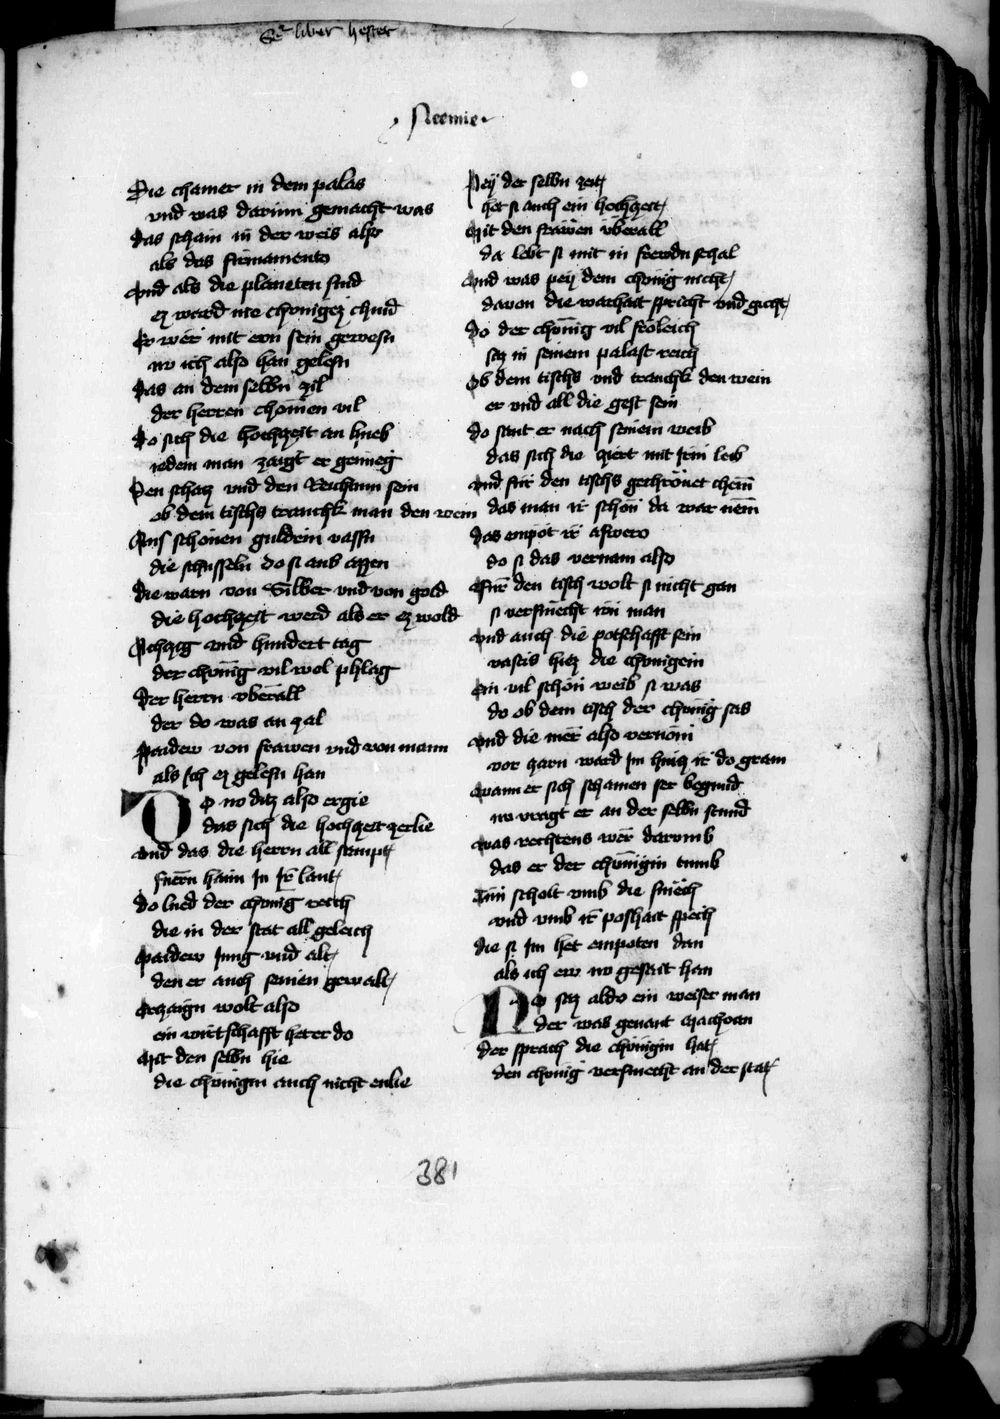 liber hester
Neemie
Die chamer in dem palas
vnd was darinn gemacht was
das schain in der weis also
als das firmamento
vnd als die planeten sind
ez ward nie chonigez chind
Er wer mit ern sein gewesn
nv ich also han gelesn
Das an dem selbn zil
der herren chomen vil
Do sich die hochzeit an hueb
iedem man zaigt er genueg
Den schatz vnd den Reichtum sein
ob dem tischs tranchk man den wein
Aus schonen guldein vassn
die schusseln do si aus assen
die warn von Silber vnd von gold
die hochzeit werd als er ez wold
Achzig vnd hundert tag
der chönig vil wol phlag
Der herrn vberall
der do was an zal
Paidew von frawen vnd von mann
als Ich ez gelesn han
Do no ditz also ergie
das sich die hochzeit zerlie
vnd das die herrn all sampt
fuern haim In Ir lant
do lued der chonig reich
die in der stat all geleich
Paidew Jung vnd alt
den er auch seinen gewalt
Erzaign wolt also
ein wirtschafft het er do
Mit den selbn hie
die chonigin auch nicht enlie
Pey der selbn zeit
het si auch ein hochzeit
Mit den frawen vberall
da lebt si mit in frewdn schal
vnd was pey dem chonig nicht
davon die warhait spricht vnd gicht
do der chonig vil froleich
saz in seinem palast reich
Ob dem tischs vnd tranchk den wein
er vnd all die gest sein
do sant er nach seinem weib
das sich die ziert mit Irm leib
vnd für den tischs gechrönet chem
das man ir schon da war nem
das enpot ir aswero
do si das vernam also
Für den tisch wolt si nicht gan
si versmecht irn man
vnd auch die potschafft sein
vastis hiez die chonigein
Ein vil schön weib si was
do ob dem tisch der chonig sas
vnd die mer also vernom
vor zarn ward Im hertz ir do gram
wann er sich schamen ser begund
nv vragt er an der selbn stund
was rechtens wer darumb
das er der chonigin tumb
Tun scholt vmb die smech
vnd vmb ir poshait spech
die si Im het enpoten dan
als ich ew no gesait han
No saz aldo ein weiser man
der was genant Machoan
der sprach die chonigin hat
den chonig versmecht an der stat
381